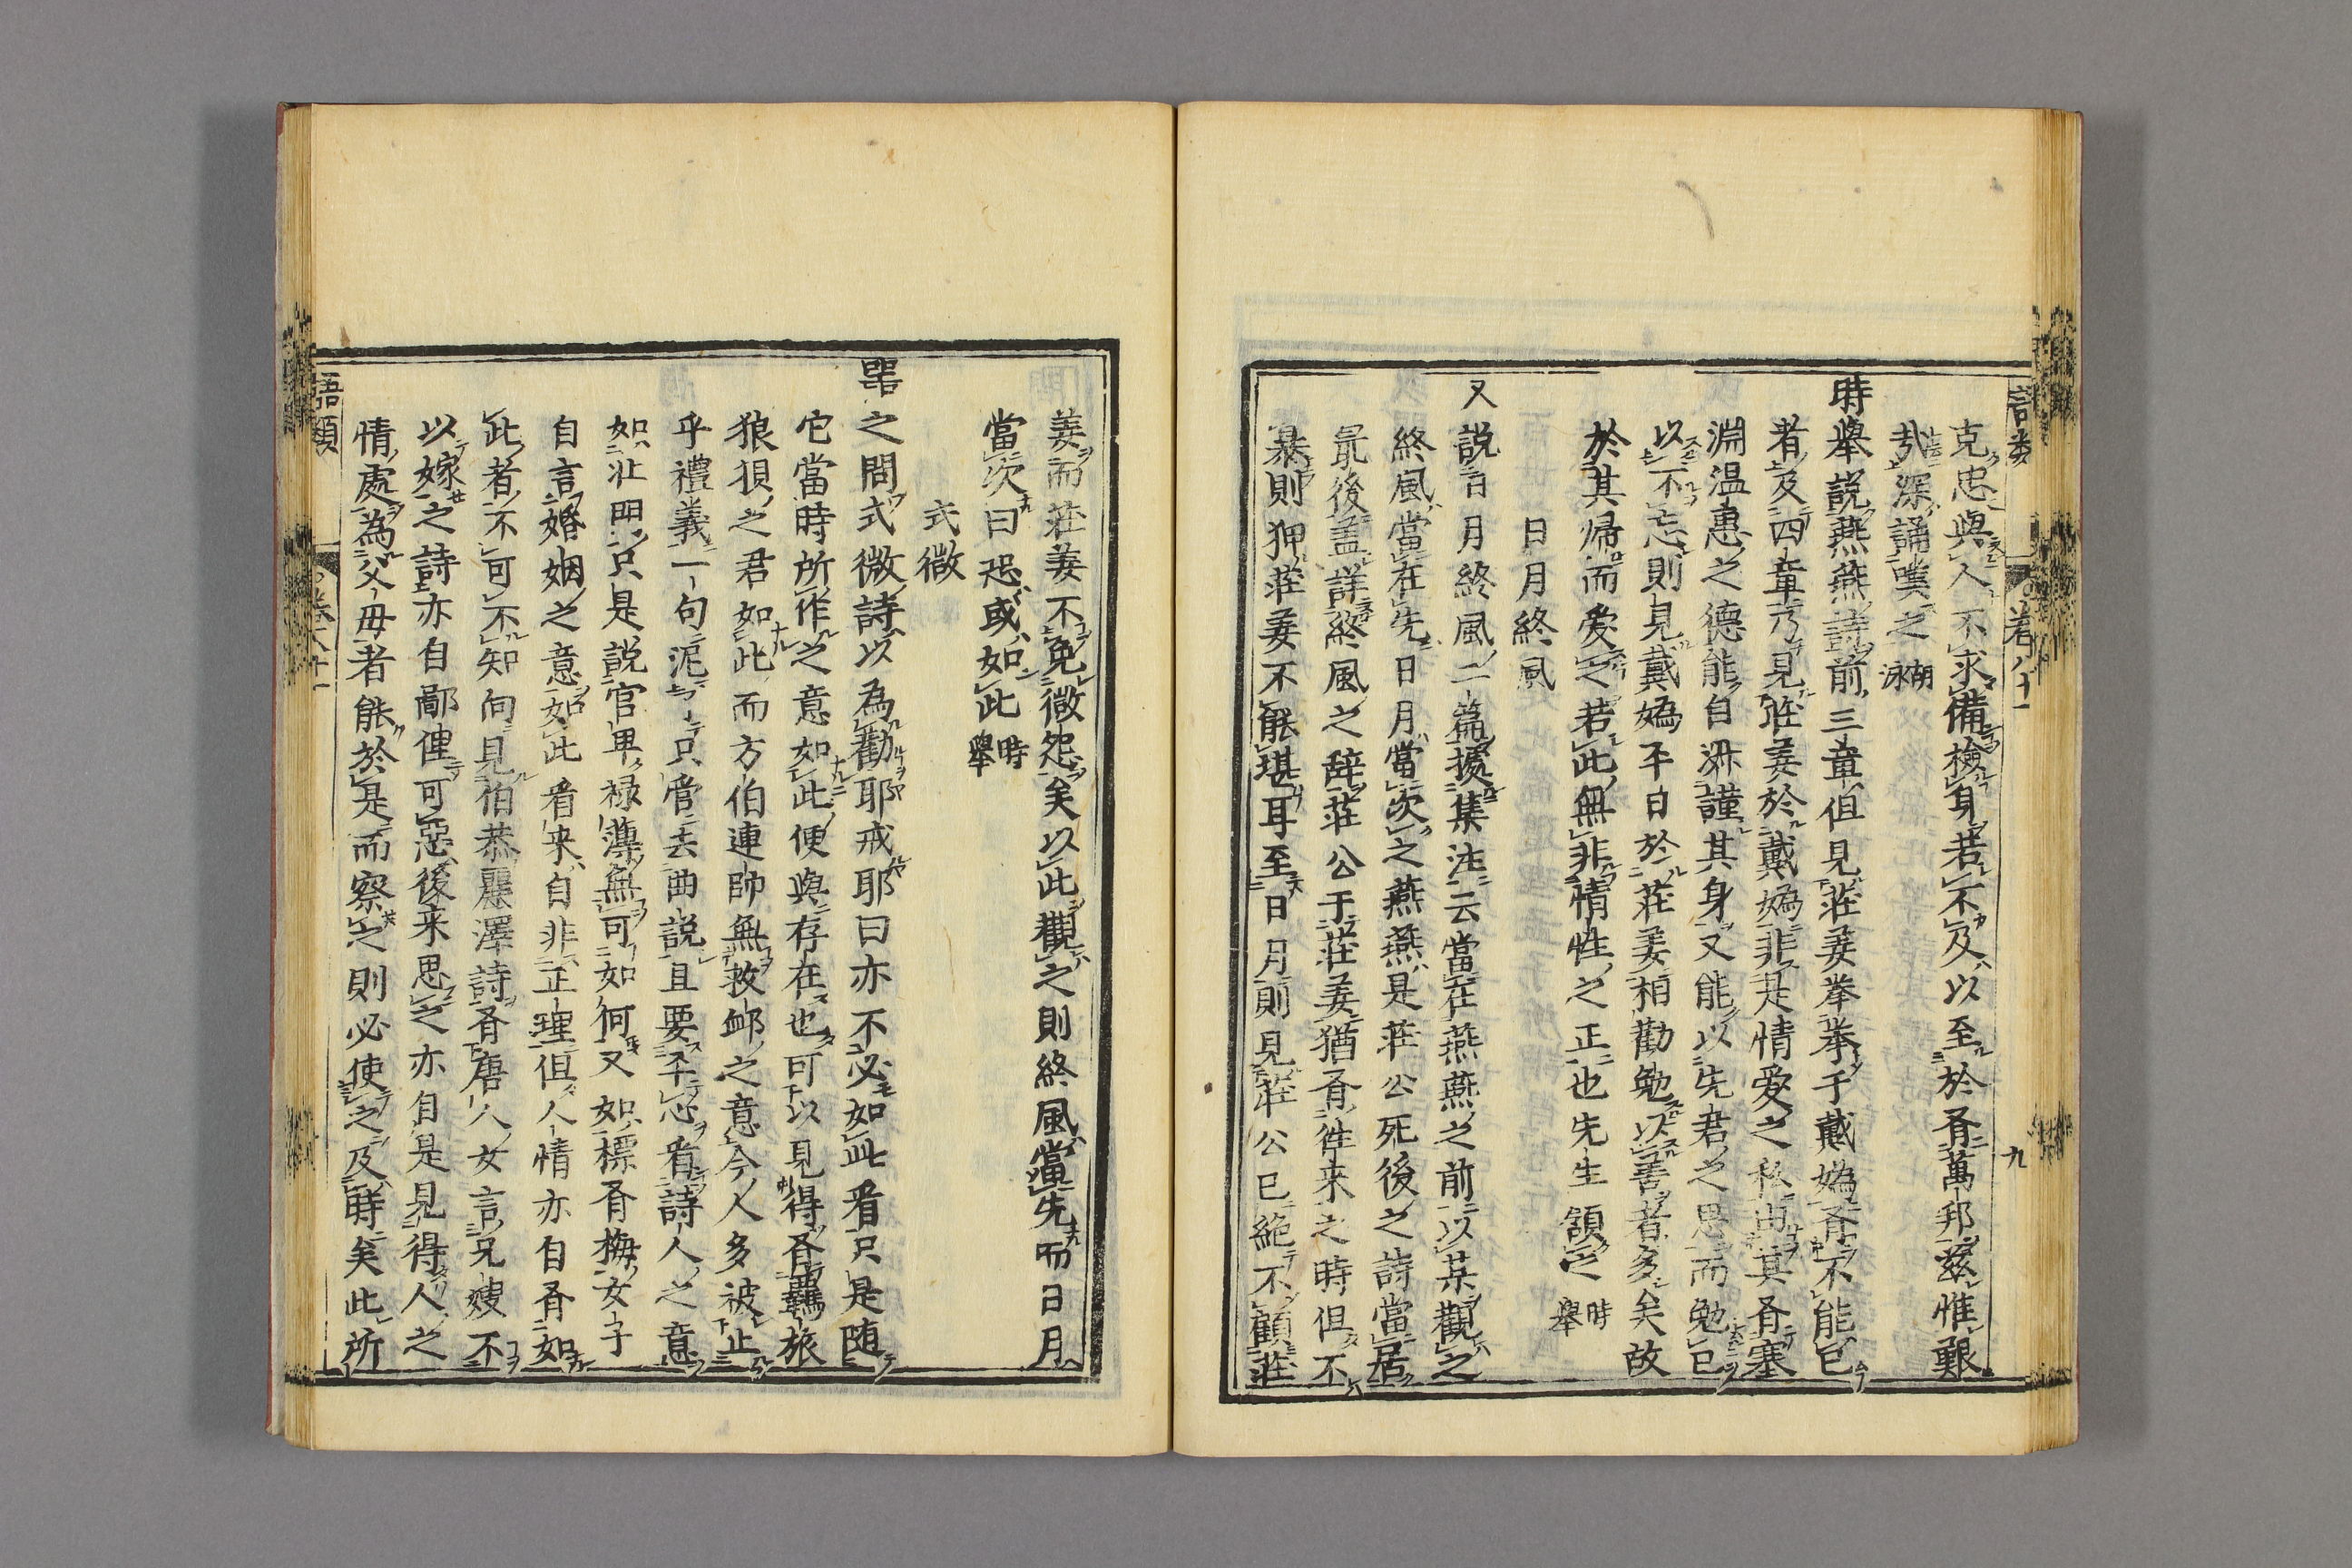 語類 卷八十一 九
克忠與人不求備檢身若不及以至於有萬邦茲惟艱
哉深誦嘆之 胡泳
時舉說燕燕詩前三章但見莊姜拳拳于戴媯有不能已
者及四章乃見莊姜於戴媯非是情愛之私由其有塞
淵溫惠之德能自淑謹其身又能以先君之思而勉已
以不忘則見戴媯平日於莊姜相勸勉以善者多矣故
於其帰而愛之若此無非情性之正也先生頷之 時舉
日月終風
又說日月終風二篇據集注云當在燕燕之前以某觀之
終風當在先日月當次之燕燕是莊公死後之詩當居
最後盖詳終風之辞莊公于莊姜猶有徃来之時但不
暴則狎莊姜不能堪耳至日月則見莊公已絶不顧莊
姜而莊姜不免微怨矣以此觀之則終風當先而日月
當次曰恐或如此 時舉
式微
器之問式微詩以為勸耶戒耶曰亦不必如此看只是随
它當時所作之意如此便與存在也可以見得有羈旅
狼狽之君如此而方伯連帥無救卹之意今人多被止
乎禮義一句泥了只管去曲說且要平心看詩人之意
如北門只是說官卑禄薄無可如何又如摽有梅女子
自言婚姻之意如此看来自非正理但人情亦自有如
此者不可不知向見伯恭麗澤詩有唐人女言兄嫂不
以嫁之詩亦自鄙俚可惡後来思之亦自是見得人之
情處為父母者能於是而察之則必使之及時矣此所
語類 卷八十一